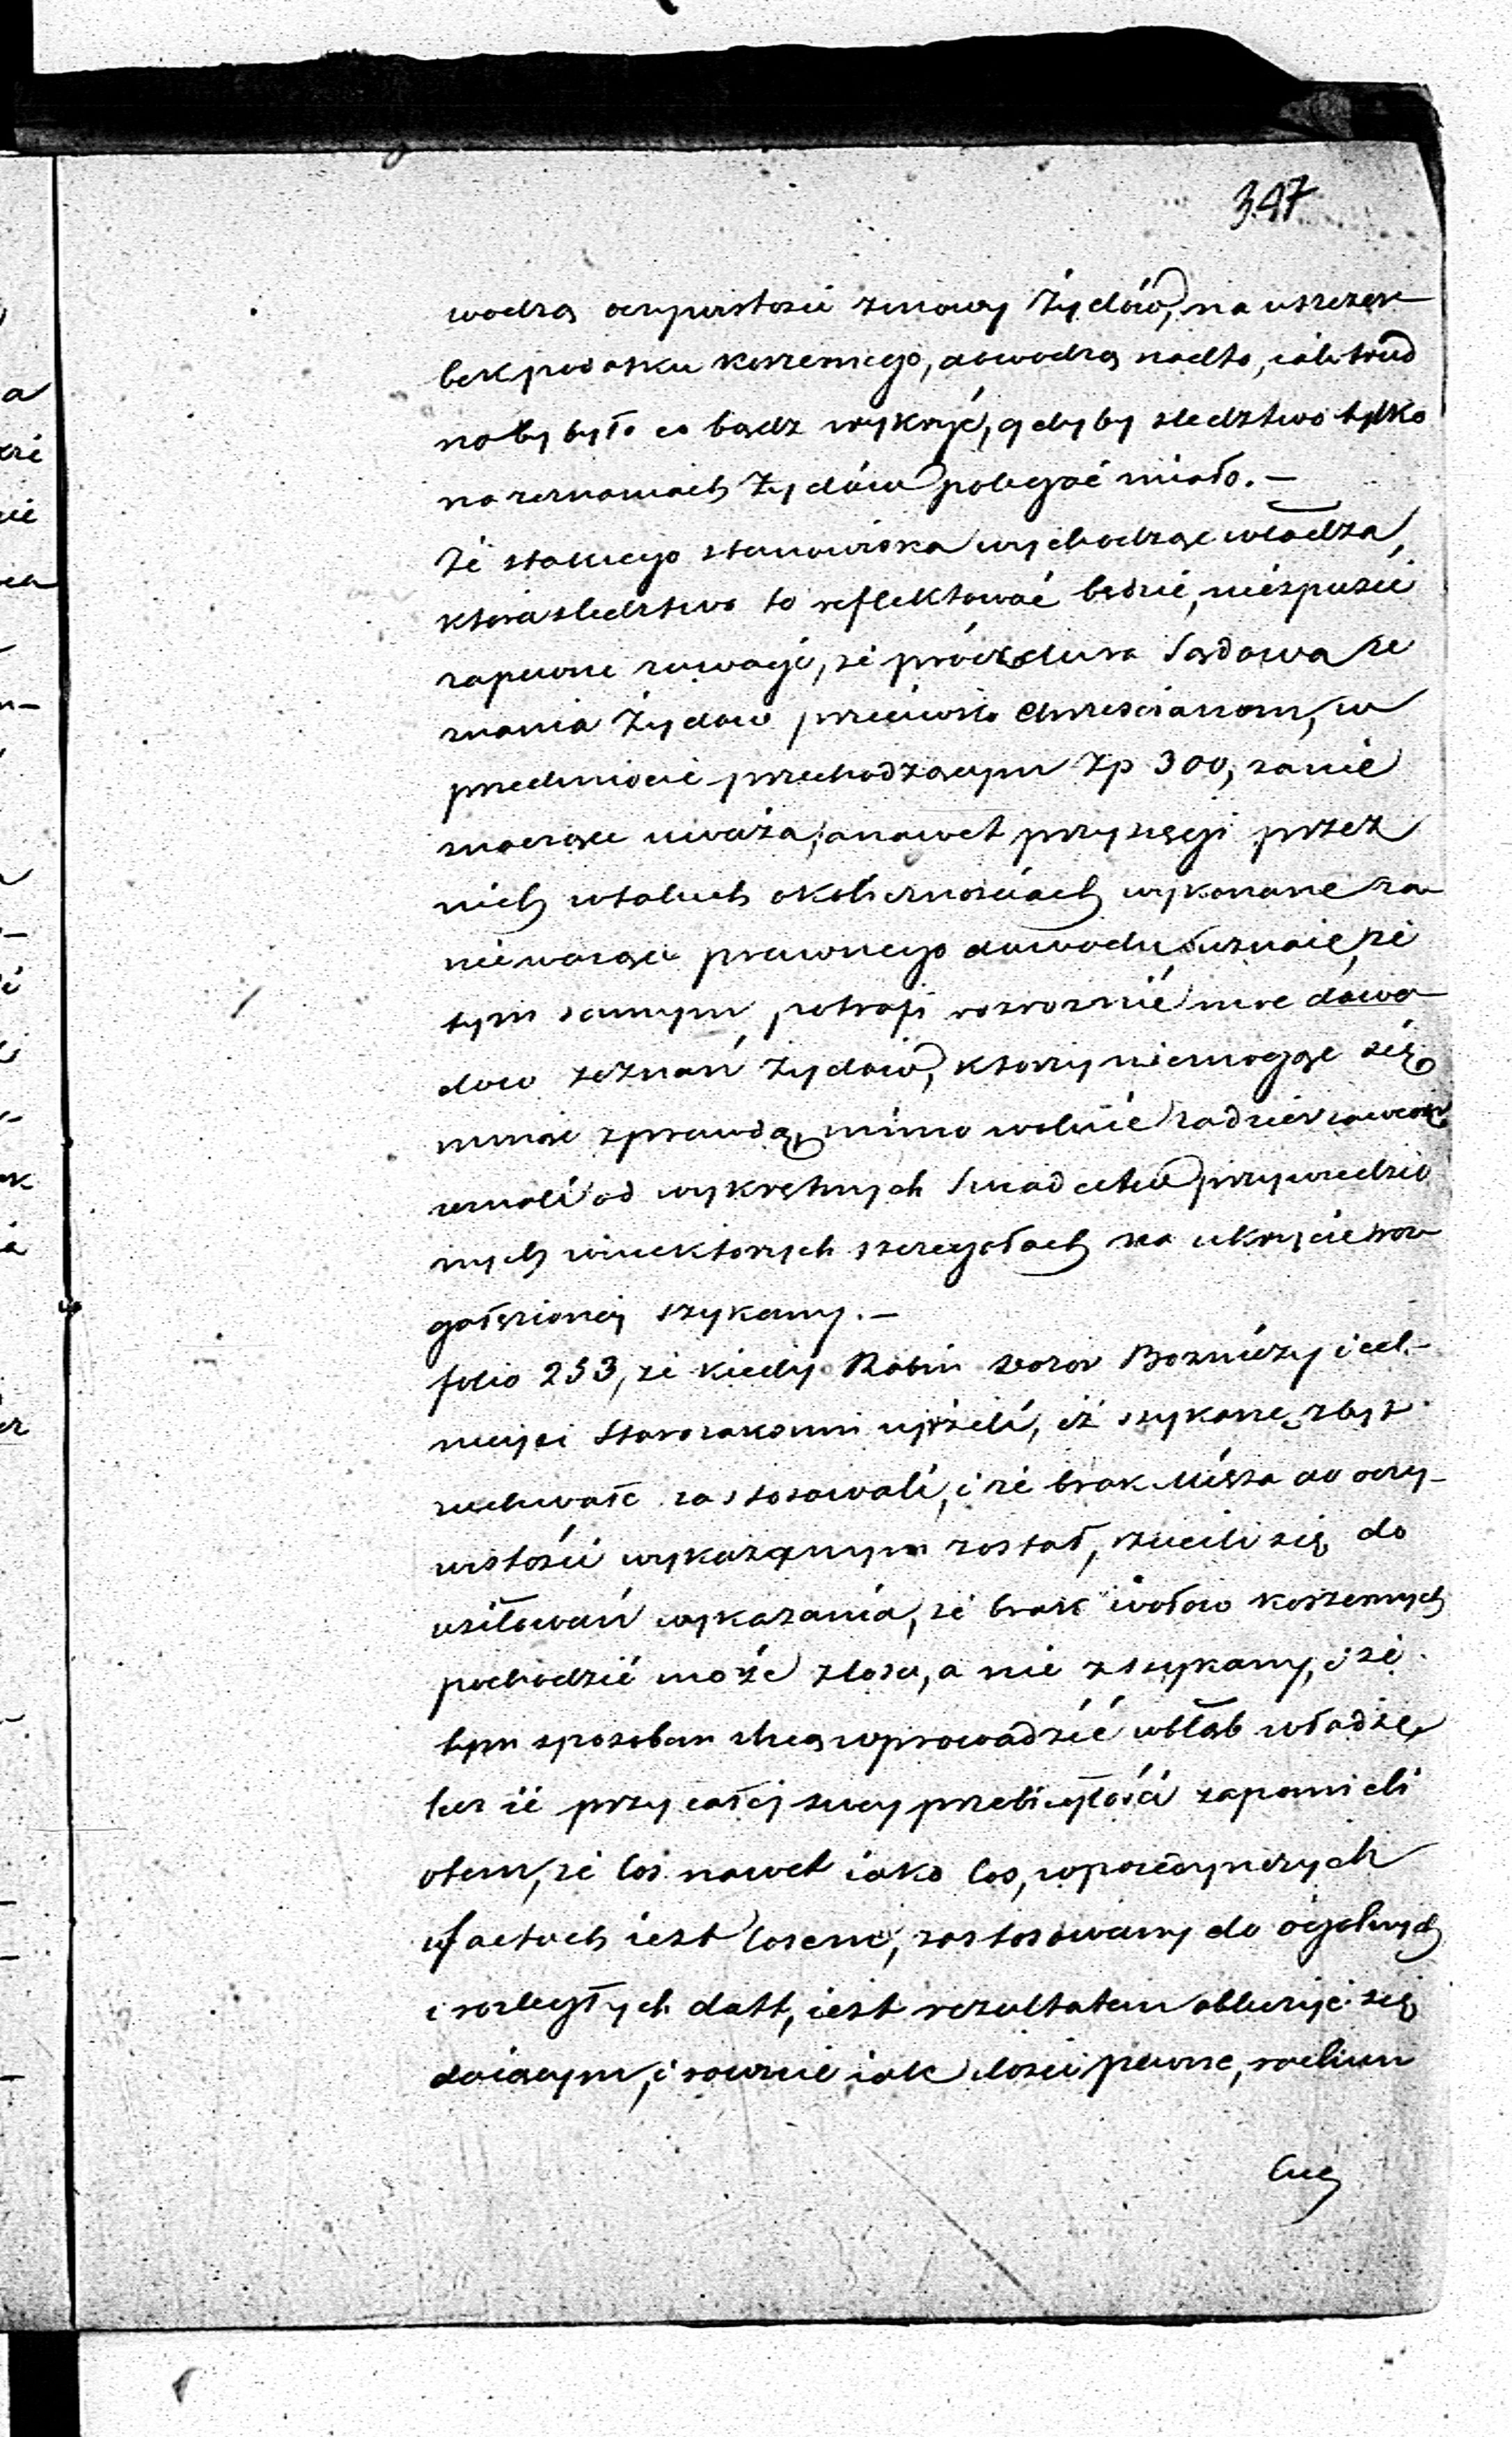 347
wodzą oczywistości zmowy Żydów, na uszczer-
bek podatku koszernego, dowodzą nadto, iak trud
noby było co bądz wykryć, gdyby sledztwo tylko
na zeznaniach Żydów polegać miało. —
Ze stałego stanowiska wychodząc władza,
ktora sledztwo to reflektować bedzie, niespusci
zapewne z uwagi, że procedura Sądowa ze
znania Żydow przeciwko Chrzescianom, w
przedmiocie przechodzącym Zp 300, za nie
znaczące uważa, a nawet przysięgi przez
nich w takich okolicznosciach wykonane za
nie maiące prawnego dowodu uznaie, że
tym samym potrafi rozroznić dowo
dow zeznań Żydów, ktorzy niemogąc się
minąć z prawdą, mimo wolnie
od wykrętnych Swiadectw przywiedzio
nych w niektorych szczegołach na ukrycie roz
gałęzioney szykany. —
folio 253, że kiedy Rabin Dozor Bozniczy i cel-
nieysi Starozakonni uyrzeli, iż szykanę zbyt
zuchwale zastosowali, i że brak Mięsa do oczy-
wistości wykazanym został, rzucili się do
usiłowań wykazania, że brak wołow koszernych
pochodzić może z losu, a nie z szykany, i że
tym sposobem chcą wprowadzić w błąb władzę,
lecz że przy całej swey przebiegłości zapomnieli
o tem, że los nawet iako los, w poiedynczych
factach iest losem, zastosowany do ogolnych
i rozległych datt, iest rezultatem obliczyć się
daiącym, i rownie iak ilosci pewne, rachun